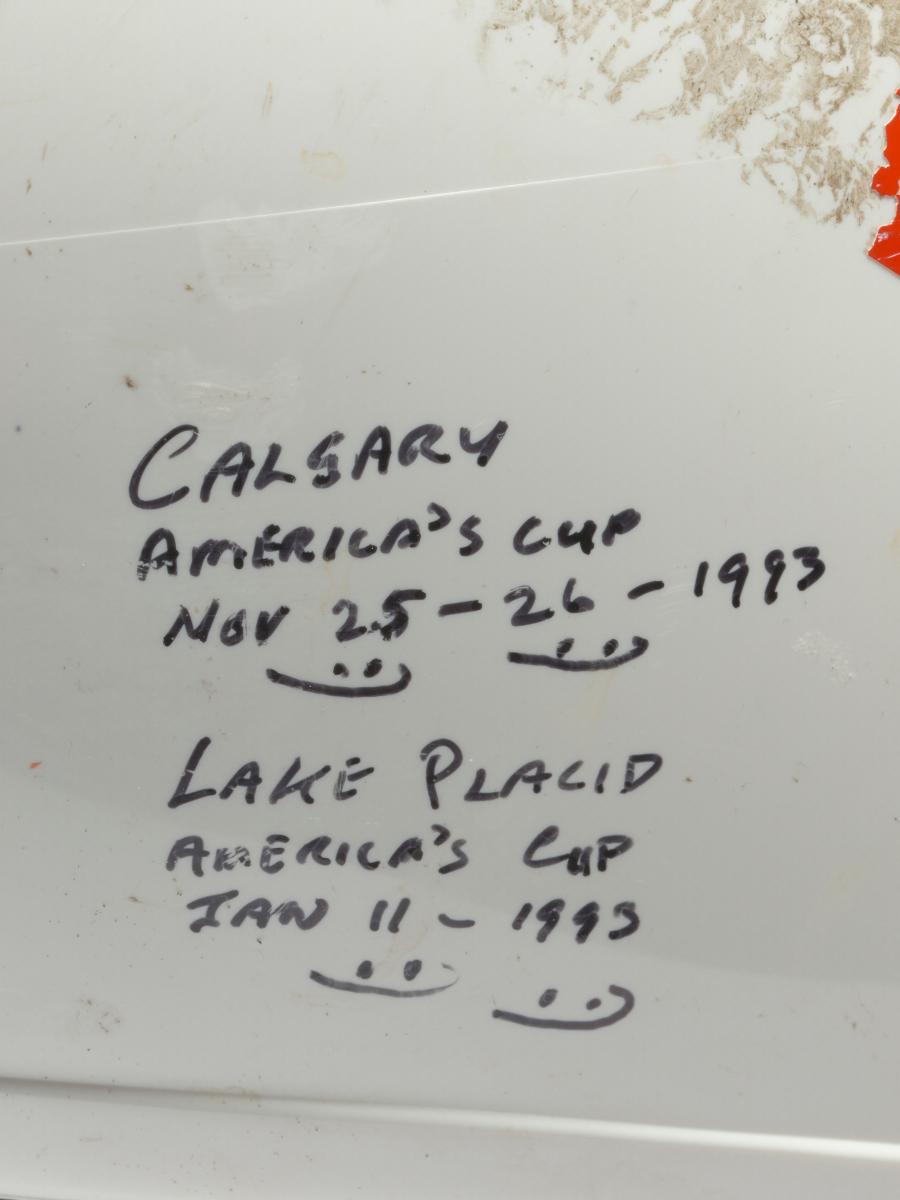 CALGARY
AMERICA'S CUP
NOV 25 - 26 - 1993
LAKE PLACID
AMERICA'S CUP
JAN 11 - 1993